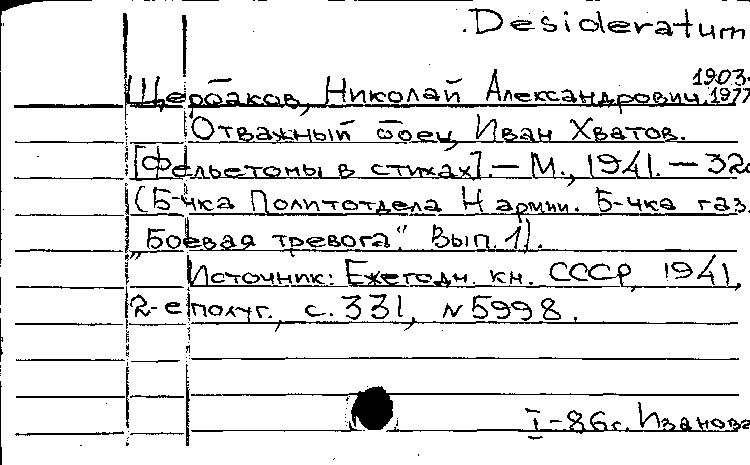 Desideratum
Щербаков, Николай Александрович. 1903-1977
Отважный боец Иван Хватов.
[Фельетоны в стихах]. — М., 1941. — 32с
(Б-чка Политотдела Н армии. Б-чка газ.
„Боевая тревога". Вып. 1).
Источник: Ежегодн. кн. СССР, 1941,
2-е полуг., с. 331, N 5998.
I-86г. Иванова